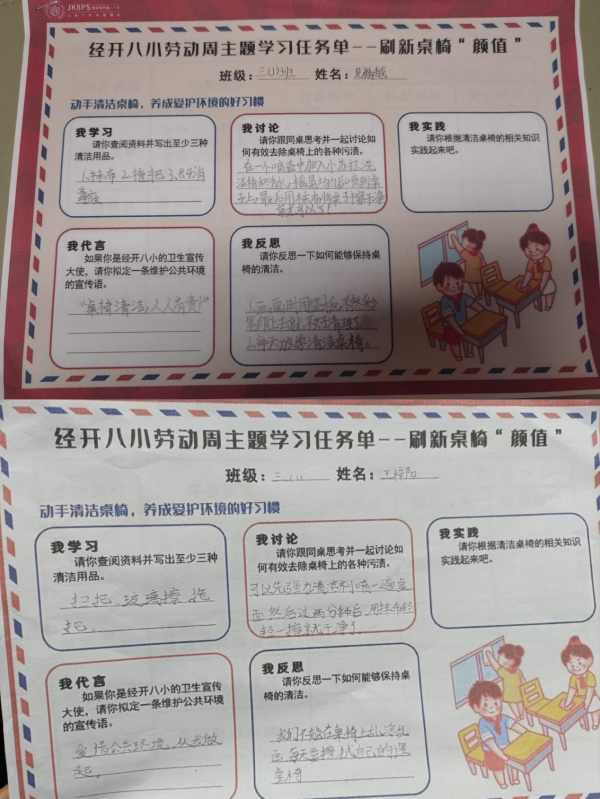 JK8PS
经开八小劳动周主题学习任务单--刷新桌椅“颜值”
班级：三(1)班 姓名：
动手清洁桌椅，养成爱护环境的好习惯
我学习
请你查阅资料并写出至少三种
清洁用品。
1.抹布2.拖把3.84消
毒液
我讨论
请你跟同桌思考并一起讨论如
何有效去除桌椅上的各种污渍。
在一个喷壶中加入小苏打、洗
洁精和水，摇晃均匀后喷到桌
子上，最后用抹布将桌子擦干净
就可以了！
我实践
请你根据清洁桌椅的相关知识
实践起来吧。
我代言
如果你是经开八小的卫生宣传
大使，请你拟定一条维护公共环境
的宣传语。
“桌椅清洁，人人有责！”
我反思
请你反思一下如何能够保持桌
椅的清洁。
1.画画时用垫板，不然彩
笔印上去就不容易清理了
2.每天放学清洁桌椅。
经开八小劳动周主题学习任务单--刷新桌椅“颜值”
班级：三(1) 姓名：
动手清洁桌椅，养成爱护环境的好习惯
我学习
请你查阅资料并写出至少三种
清洁用品。
扫把，玻璃擦，拖
把。
我讨论
请你跟同桌思考并一起讨论如
何有效去除桌椅上的各种污渍。
可以先强力清洁剂喷一遍桌
面，然后过两分钟后，用抹布轻
轻一擦就干净了。
我实践
请你根据清洁桌椅的相关知识
实践起来吧。
我代言
如果你是经开八小的卫生宣传
大使，请你拟定一条维护公共环境
的宣传语。
爱惜公共环境，从我做
起。
我反思
请你反思一下如何能够保持桌
椅的清洁。
我们不能在桌椅上乱涂乱
画，每天要擦拭自己的课
桌椅